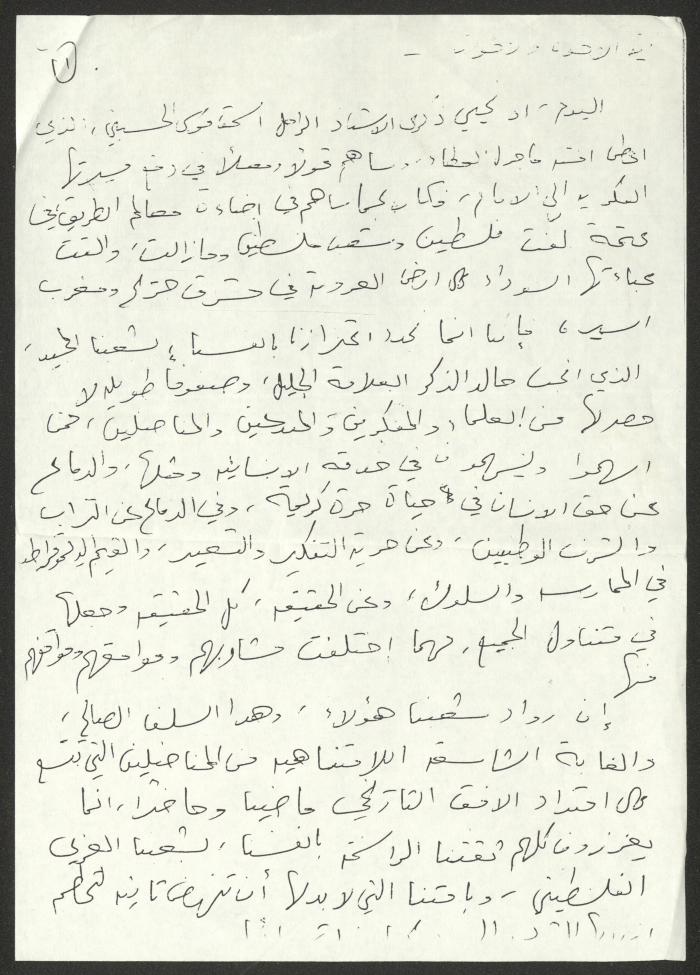 أيها الاخوة والاخوات -
(٢)
اليوم، اذ نحيي ذكرى الاستاذ الراحل اسحق موسى الحسيني، الذي
اعطى امته ما جل العطاء، وساهم قولا وفعلا في دفع مسيرتها
الفكرية الى الامام، فكان نجما ساهم في اضاءة معالم الطريق في
عتمة لفّت فلسطين وشعب فلسطين وما زالت، والقت
عباءتها السوداء على ارض العروبة في مشرق ومغرب
اسير، فإننا انما نجدد اعتزازنا بانفسنا، بشعبنا المجيد،
الذي انجب خالد الذكر العلامة الجليل، وصفوفا طويلة لا
حصر لها من العلماء والمفكرين والمبدعين والمناضلين، ممن
اسهموا ويسهمون في خدمة الانسانية ومثلها، والدفاع
عن حق الانسان في حياة حرة كريمة، وفي الدفاع عن التراب
والتراث الوطنيين، وعن حرية التفكير والتعبير، والقيم الديمقراطية
في الممارسة والسلوك، وعن الحقيقة، كل الحقيقة وجعلها
في متناول الجميع، مهما اختلفت مشاربهم ومواقعهم ومواقفهم
منها
إن رواد شعبنا هؤلاء، وهذا السلف الصالح،
والغابة الشاسعة اللامتناهية من المناضلين التي تتسع
على امتداد الافق التاريخي ماضيا وحاضرا، انما
يعززون كلهم ثقتنا الراسخة بانفسنا، بشعبنا العربي
الفلسطيني، وبامتنا التي لا بد لها أن تنهض ثانية لتحطم